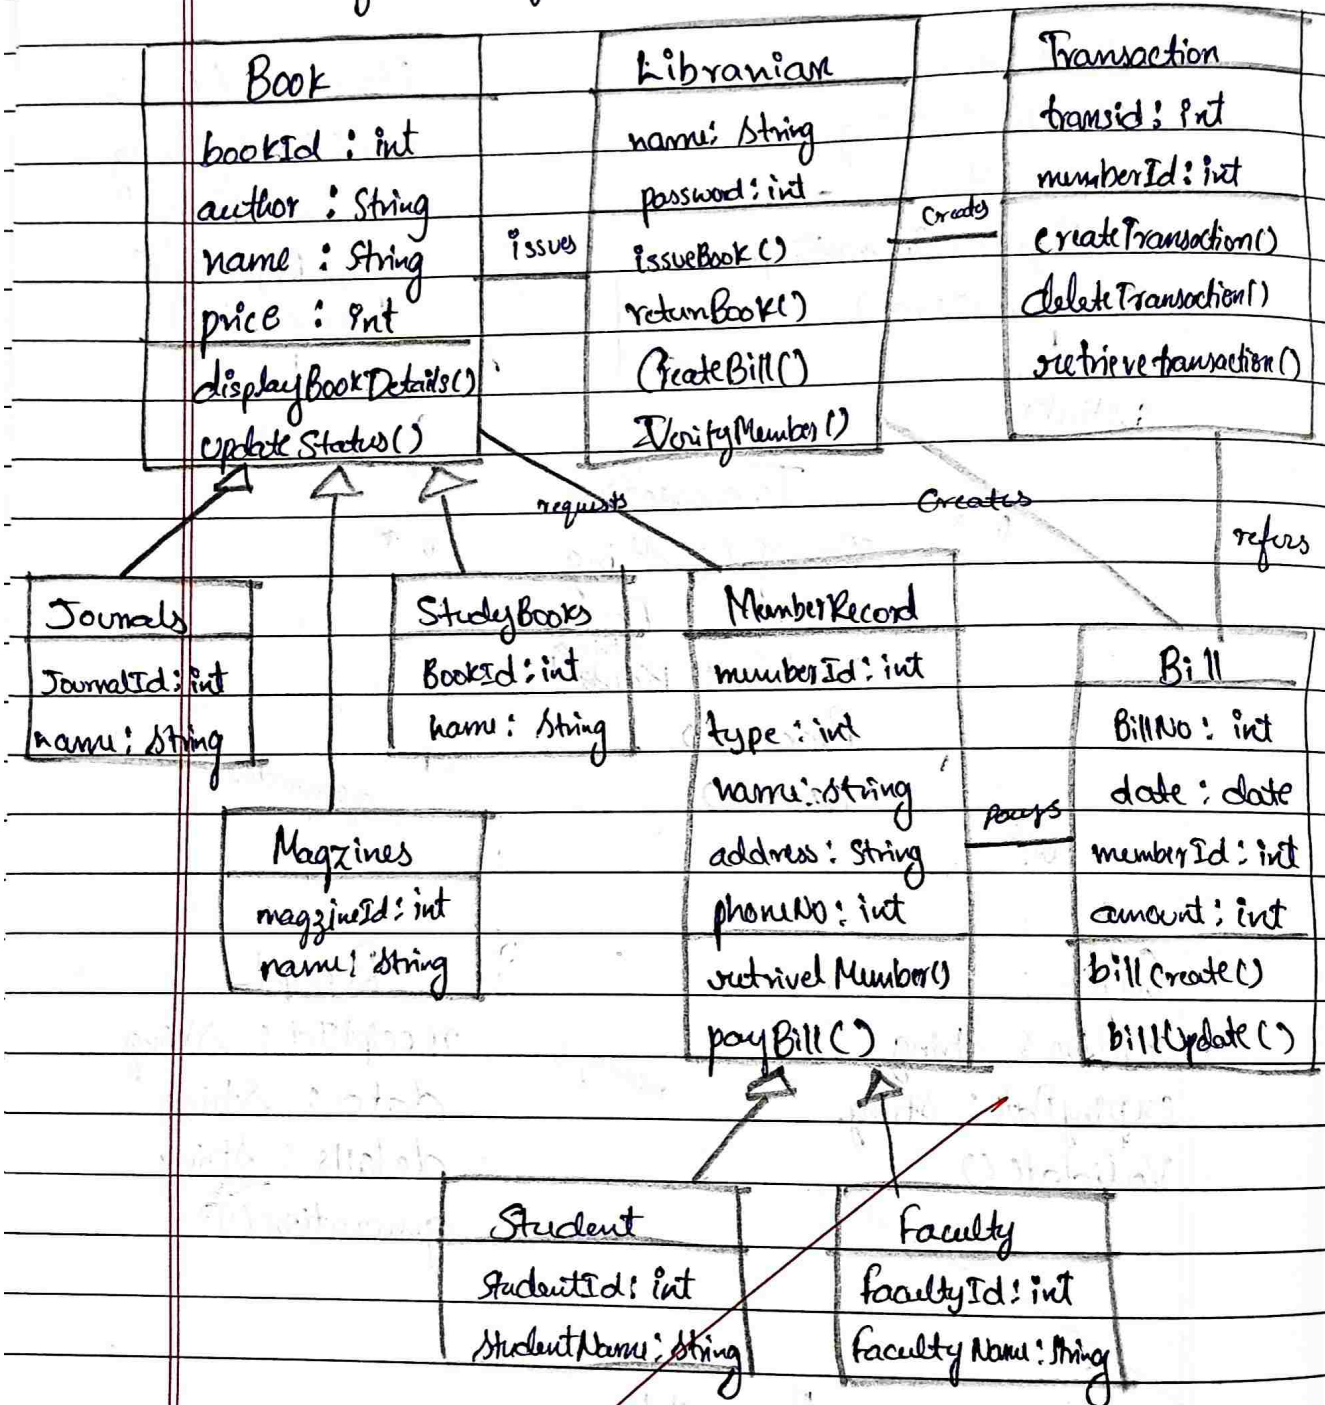 Book
bookId : int
author : String
name : String
price : int
displayBookDetails()
updateStatus()
issues
Libranian
name: String
password: int
issueBook()
returnBook()
CreateBill()
VerifyMember()
Creates
Transaction
transid: int
memberId: int
createTransaction()
deleteTransaction()
retrievetransaction()
requests
Creates
refers
Journals
JournalId: int
name: String
StudyBooks
BookId: int
name: String
Magzines
magzineId: int
name: String
MemberRecord
memberId: int
type: int
name: String
address: String
phoneNo: int
retrivelMember()
payBill()
pays
Bill
BillNo: int
date: date
memberId: int
amount: int
billCreate()
billUpdate()
Student
StudentId: int
StudentName: String
Faculty
facultyId: int
facultyName: String